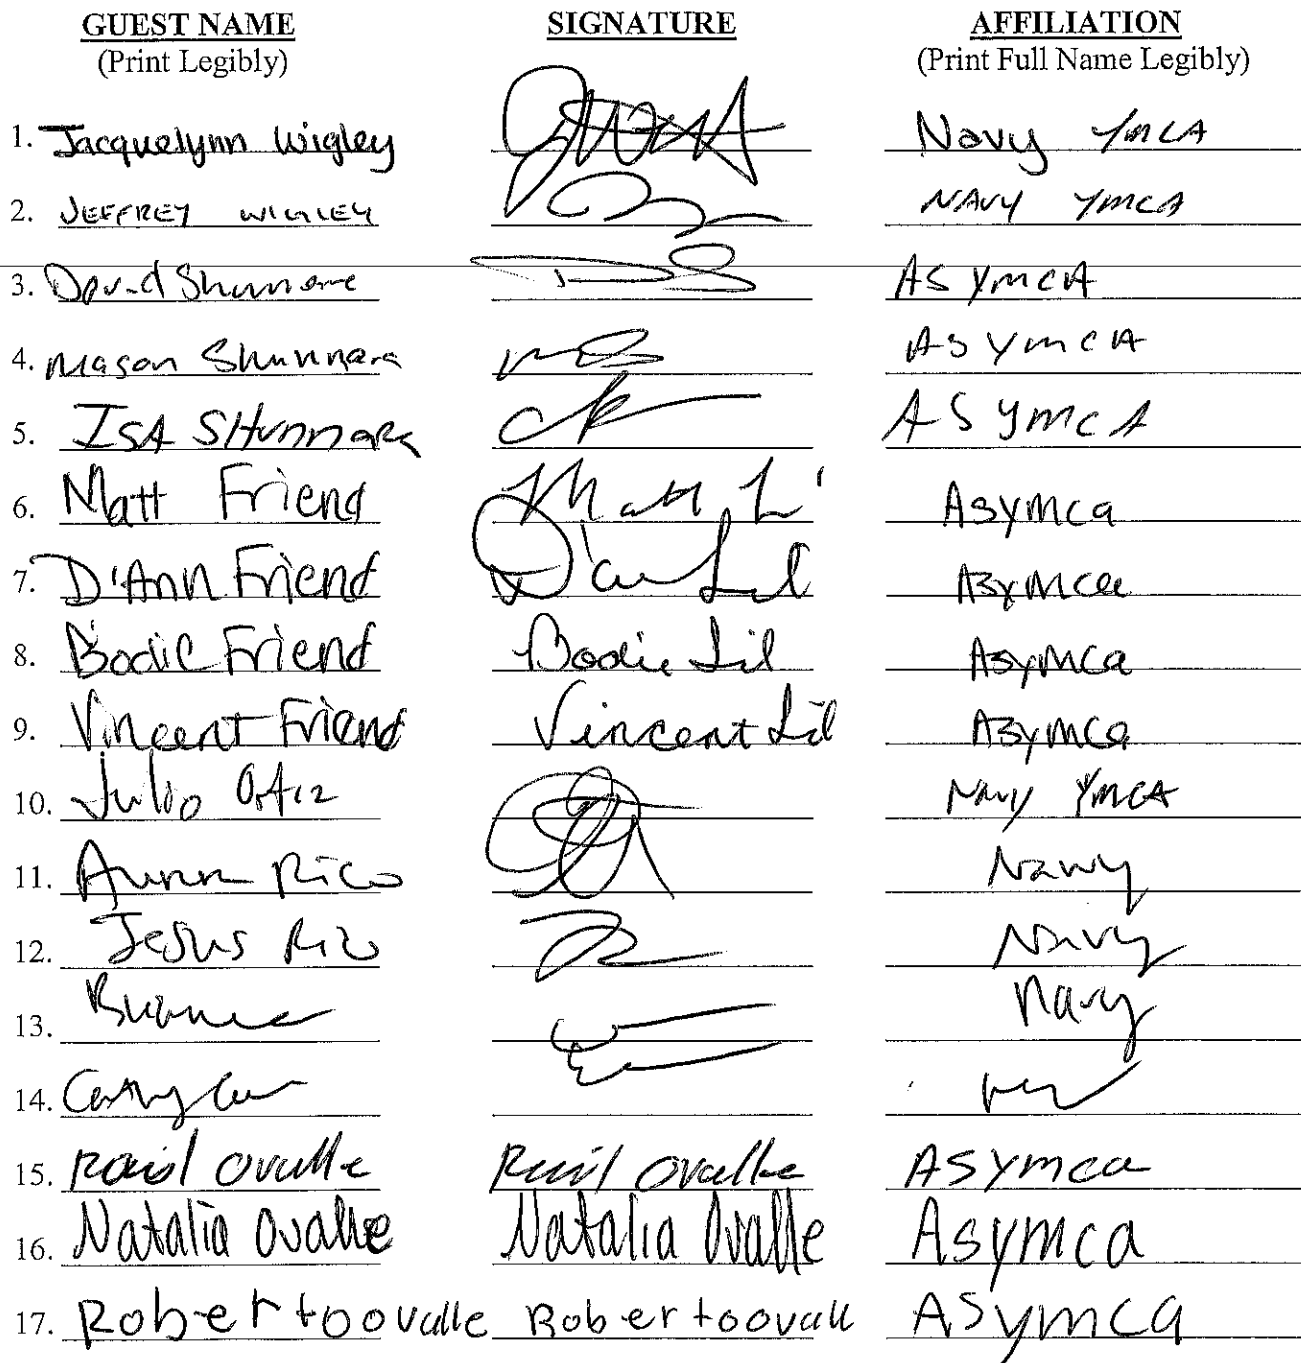 GUEST NAME SIGNATURE AFFILIATION
(Print Legibly) (Print Full Name Legibly)
1. Jacquelynn Wigley Navy YMCA
2. JEFFREY WIGLEY NAVY YMCA
3. David Shunnara ASYMCA
4. Mason Shunnara ASYMCA
5. ISA SHunnara ASYMCA
6. Matt Friend Matt Asymca
7. D'Ann Friend Asymca
8. Bodie Friend Bodie Asymca
9. Vincent Friend Vincent Asymca
10. Julio Ortiz Navy YMCA
11. Rico Navy
12. Jesus Rico Navy
13. Navy
14. Cathy
15. Raul Ovalle Raul Ovalle ASYmca
16. Natalia Ovalle Natalia Ovalle Asymca
17. Robertoovalle Robertoovall ASYmca